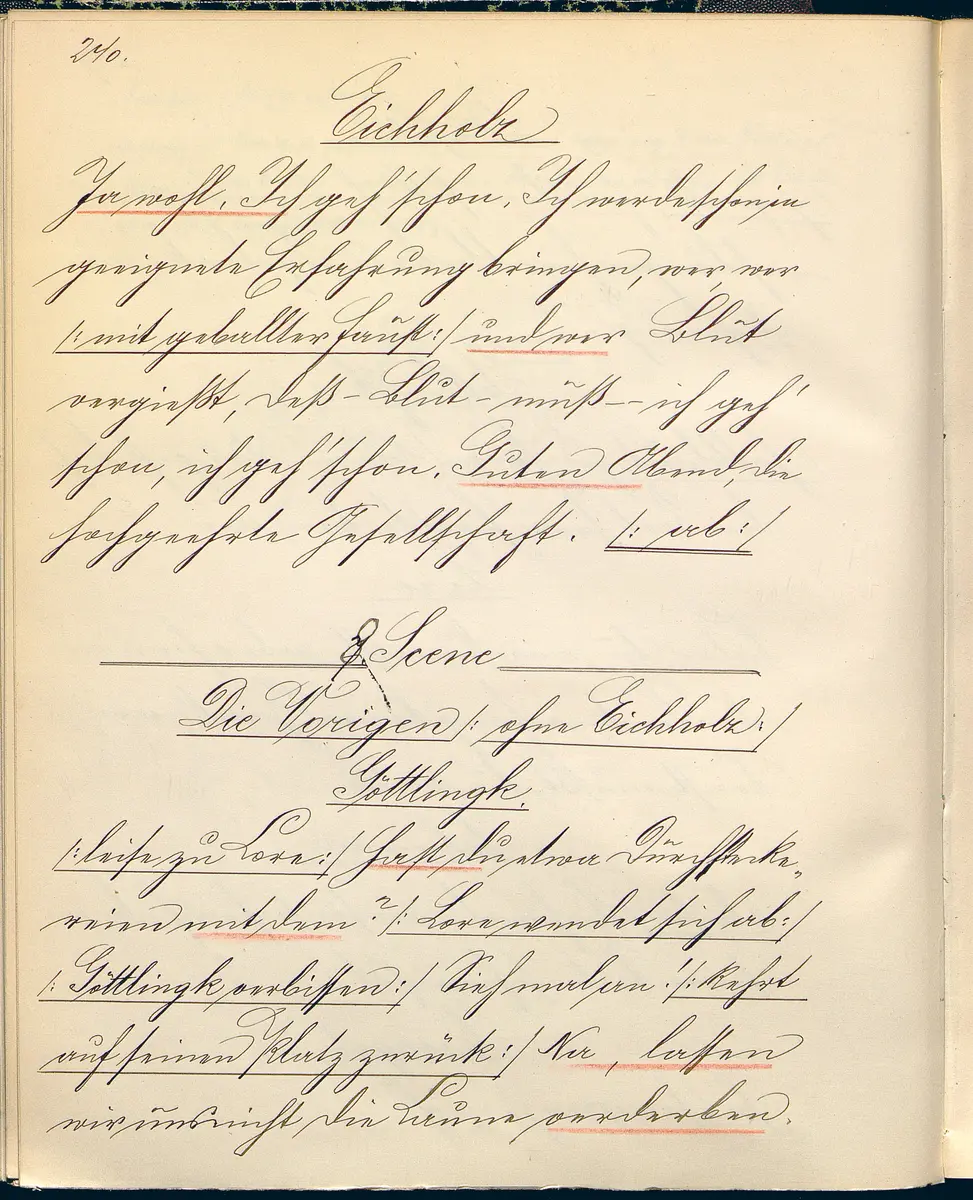 240.
Eichholz
Ja wohl. Ich geh' schon. Ich werde schon in
geeignete Erfahrung bringen, wer, wer
/: mit geballter Faust :/ und wer Blut
vergießt, deß – Blut – muß – ich geh'
schon, ich geh' schon. Guten Abend, die
hochgeehrte Gesellschaft. /: ab :/
8. Scene
Die Vorigen /: ohne Eichholz :/
Göttlingk.
/: leise zu Lore :/ Hast du etwa Durchstecke„
reien mit dem? /: Lore wendet sich ab :/
/: Göttlingk verbissen :/ Sieh mal an! /: kehrt
auf seinen Platz zurück :/ Na, lassen
wir uns nicht die Laune verderben.